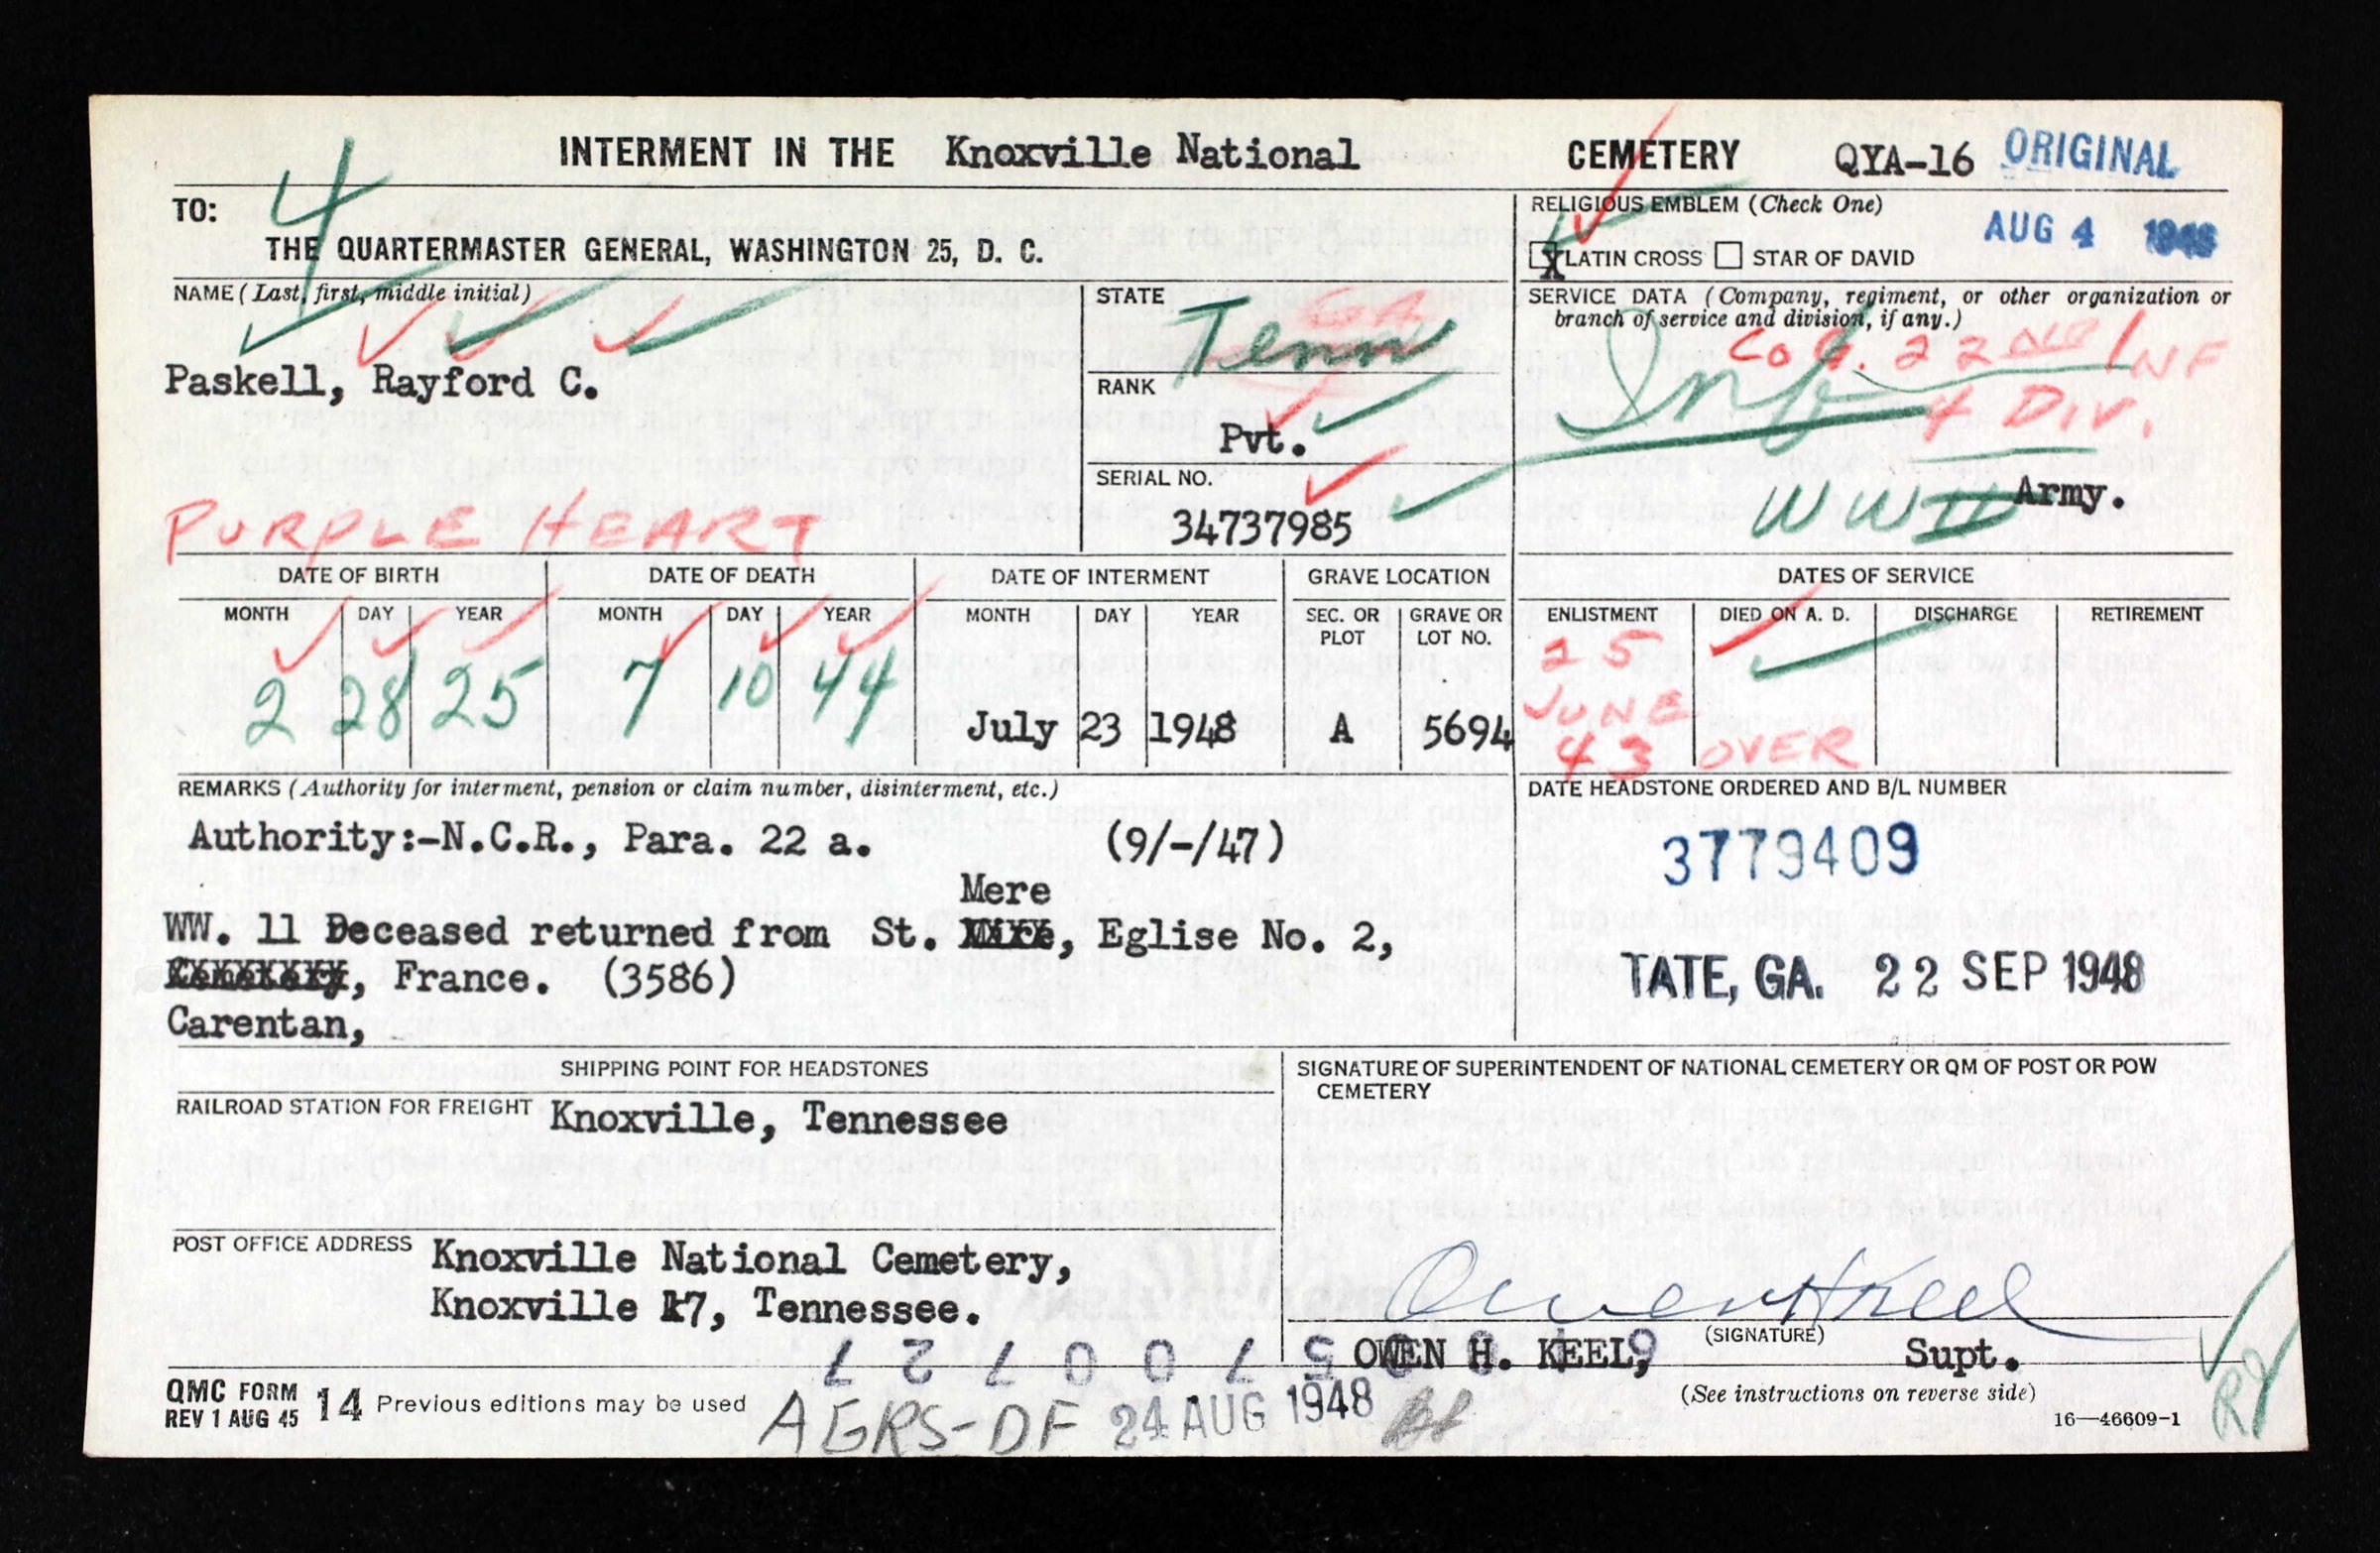 INTERMENT IN THE Knoxville National CEMETERY QYA-16 ORIGINAL
TO: 4
THE QUARTERMASTER GENERAL, WASHINGTON 25, D. C.
RELIGIOUS EMBLEM (Check One)
AUG 4 1948
X LATIN CROSS STAR OF DAVID
NAME (Last, first, middle initial)
Paskell, Rayford C.
PURPLE HEART
STATE
GA
Tenn
RANK
Pvt.
SERIAL NO.
34737985
SERVICE DATA (Company, regiment, or other organization or
branch of service and division, if any.)
22 ND INF
Inf
4 DIV.
WW II Army.
DATE OF BIRTH DATE OF DEATH DATE OF INTERMENT GRAVE LOCATION DATES OF SERVICE
MONTH DAY YEAR MONTH DAY YEAR MONTH DAY YEAR SEC. OR PLOT GRAVE OR LOT NO. ENLISTMENT DIED ON A. D. DISCHARGE RETIREMENT
2 28 25 7 10 44 July 23 1948 A 5694
25
JUNE
43 OVER
REMARKS (Authority for interment, pension or claim number, disinterment, etc.)
Authority:-N.C.R., Para. 22 a. (9/-/47)
Mere
WW. 11 Deceased returned from St. , Eglise No. 2,
Cemetery, France. (3586)
Carentan,
DATE HEADSTONE ORDERED AND B/L NUMBER
3779409
TATE, GA. 22 SEP 1948
SHIPPING POINT FOR HEADSTONES
RAILROAD STATION FOR FREIGHT Knoxville, Tennessee
POST OFFICE ADDRESS Knoxville National Cemetery,
Knoxville 17, Tennessee.
SIGNATURE OF SUPERINTENDENT OF NATIONAL CEMETERY OR QM OF POST OR POW
CEMETERY
Owen H Keel
(SIGNATURE)
OWEN H. KEEL, Supt.
(See instructions on reverse side)
QMC FORM 14
REV 1 AUG 45
Previous editions may be used
AGRS-DF 24 AUG 1948
16—46609-1